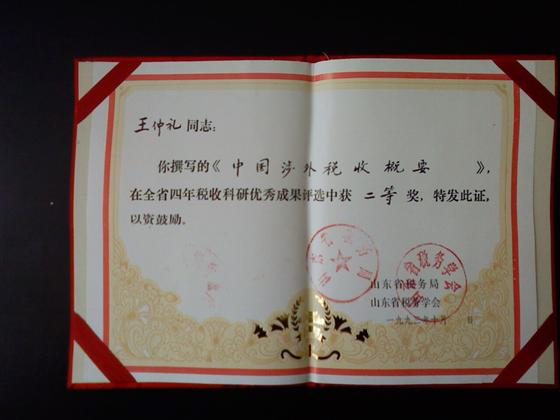 王仲礼 同志:
你撰写的《 中国涉外税收概要 》,
在全省四年税收科研优秀成果评选中获 二等 奖, 特发此证,
以资鼓励。
山东省税务局
山东省税务学会
一九九二年十月 日
山东省税务局
省税务学会